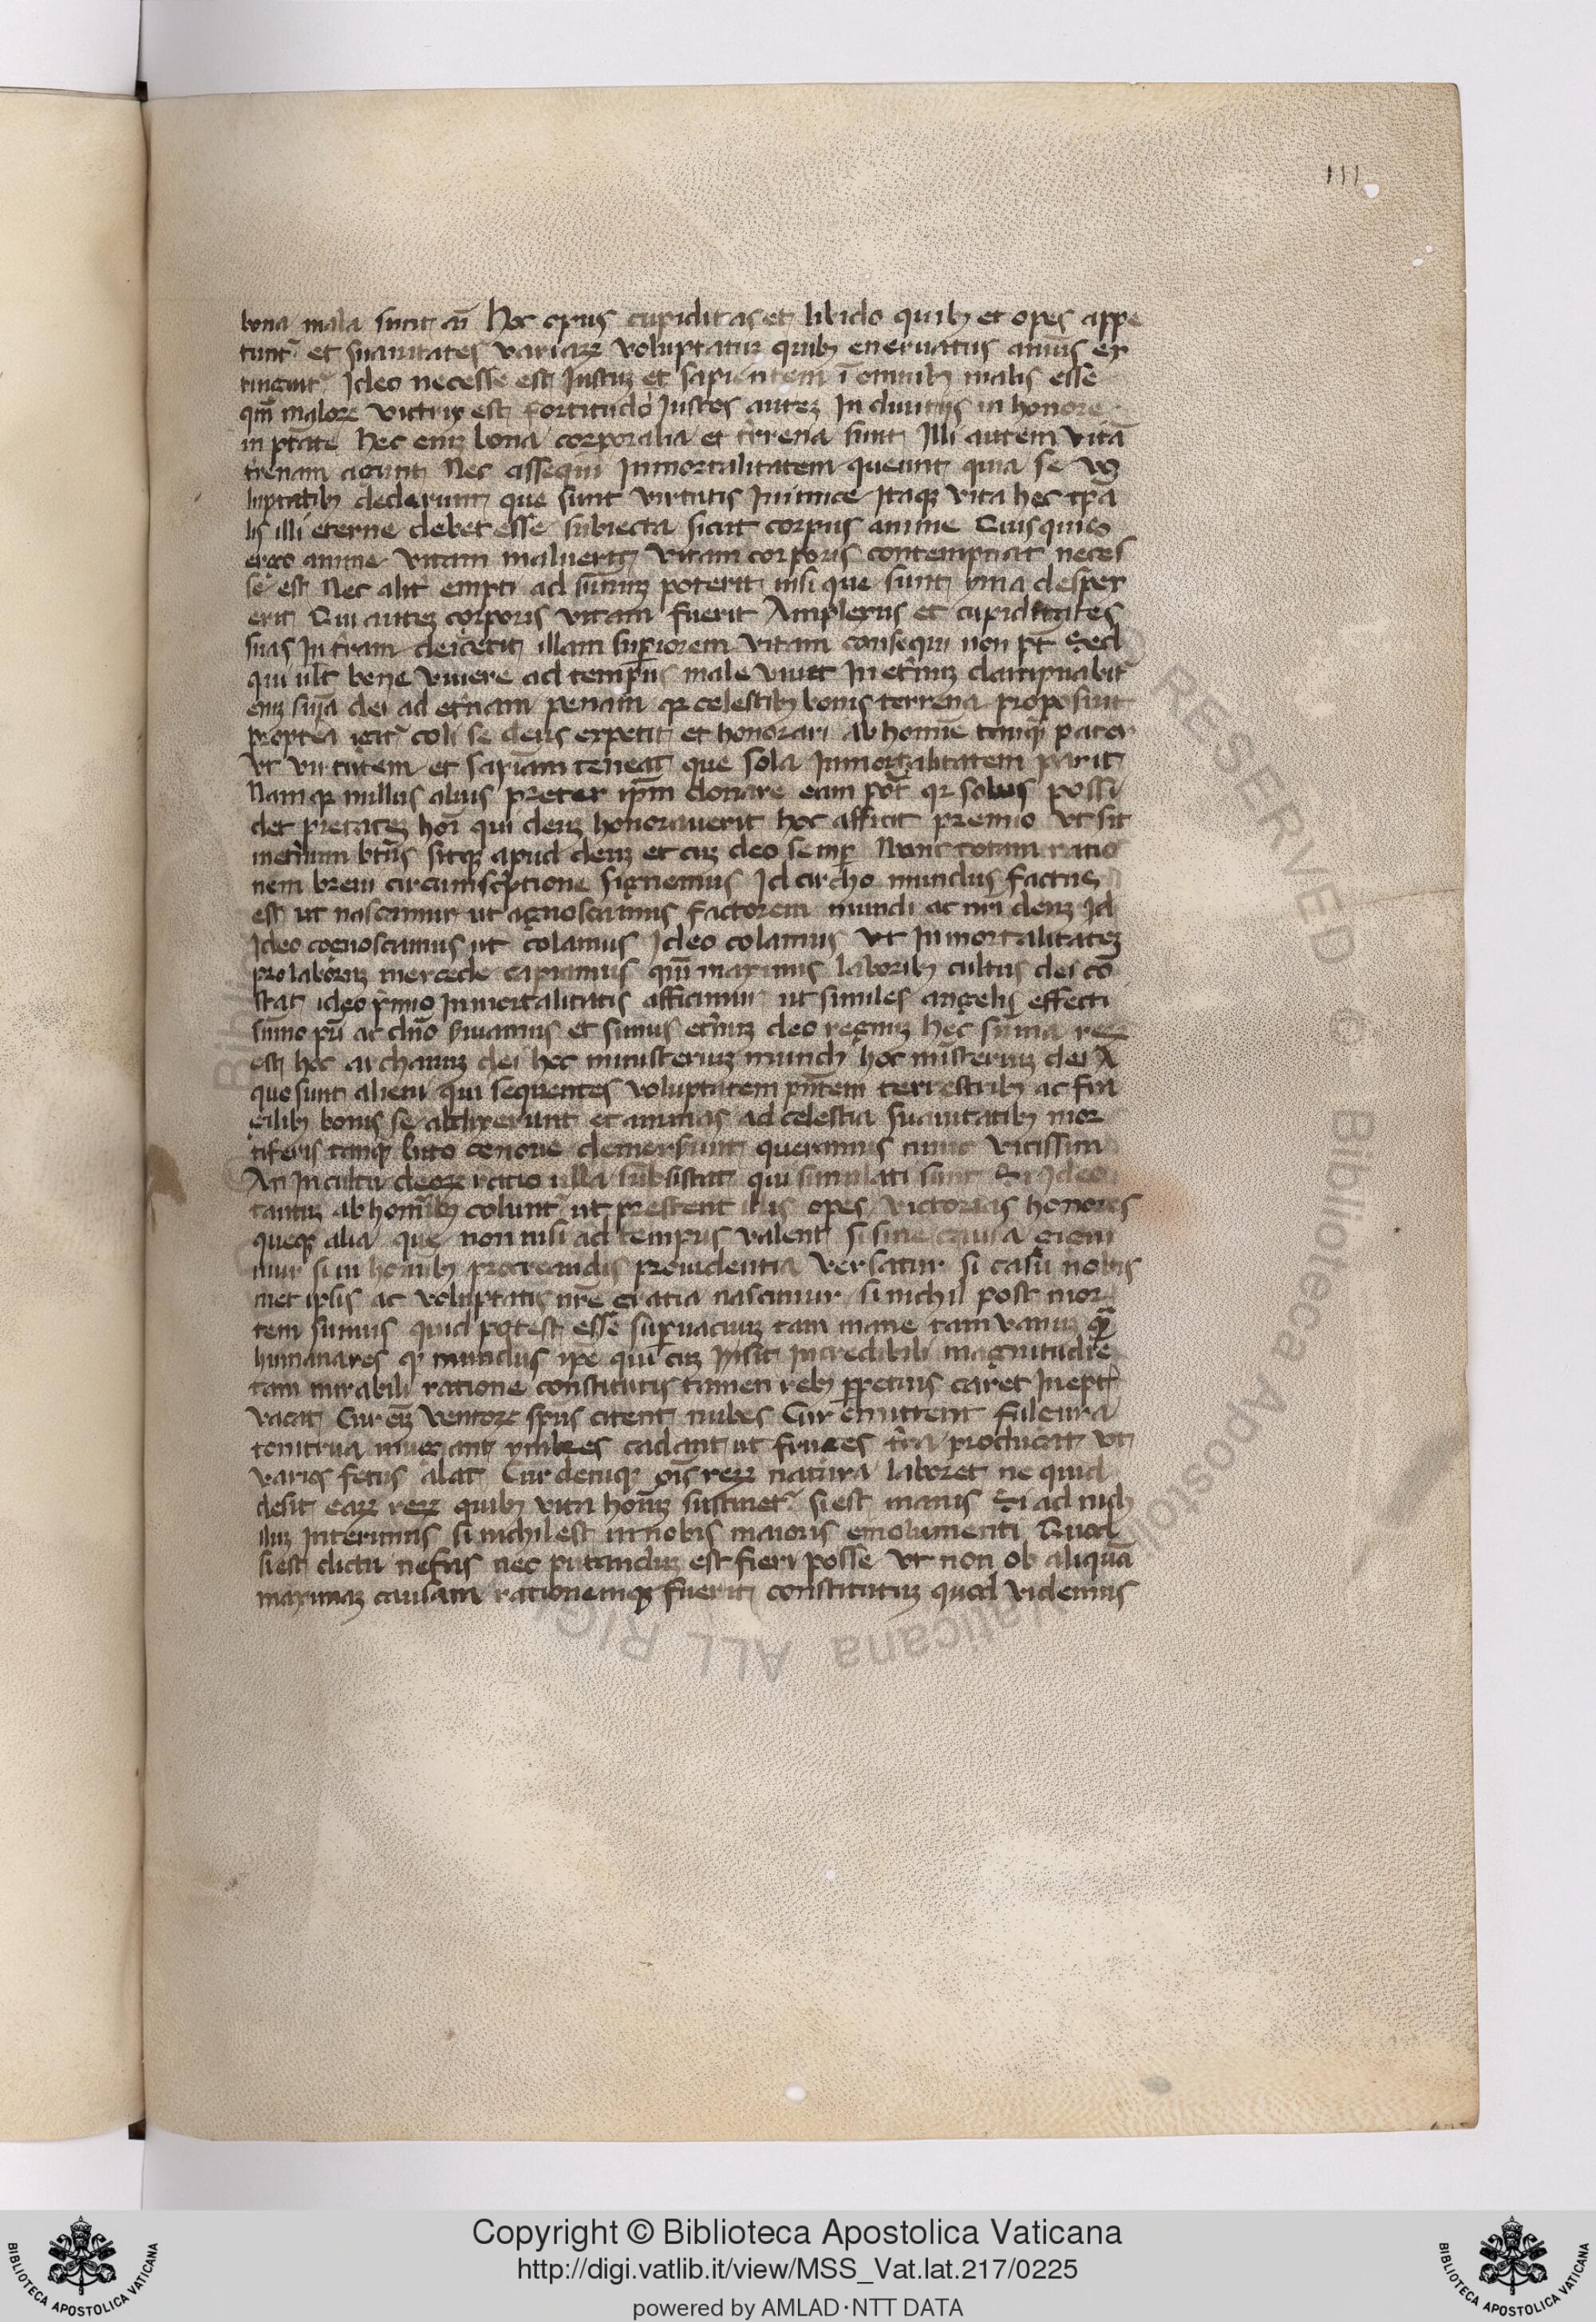 111
bona mala sunt n̄ hoc opus cupiditas et libido quibꝫ et opes appe
tunt᷑ et suauitates variaꝝ voluptatuꝫ quibꝫ eneruatus anim̄s ex
tinguit᷑ Ideo necesse est Justuꝫ et sapientem ī omnibꝫ malis esse
qm̄ maloꝝ victrix est fortitudo Iustos auteꝫ In diuitijs in honore
in ptāte hec eniꝫ bona corporalia et tr̄rena sunt Illi autem vitā
tr̄renam agunt Nec assequi Inmortalitatem queunt quia se vo
luptatibꝫ dederunt que sunt virtutis Inimice Itaqꝫ vita hec tp̄a
lis illi eterne debet esse subiecta sicut corpus anime Quisquis
ergo anime vitam maluerit vitam corporis contempnat neces
se est Nec alit᷑ empti ad sum̄uꝫ poterit nisi que sunt yma despex
erit Qui auteꝫ corporis vitam fuerit Amplexus et cupiditates
suas In tr̄am deicerit illam suꝑiorem vitam consequi non pt̄ Sed
qui ult̄ bene viuere ad tempus male viuit In et᷑nuꝫ dampnabit᷑
eniꝫ sn̄ia dei ad et᷑nam penam qꝛ celestibꝫ bonis terrena proposuit
proptea igit᷑ coli se deus expetit et honorari Ab homīe tanqꝫ pater
vt virtutem et sapīam teneat que sola Inmortalitatem parit
Nam qꝛ nullus alius preter ip̄m donare eam pot̄ qꝛ solus possi
det pietateꝫ hoī qui deuꝫ honorauerit hoc afficit premio vt sit
inet᷑num bt̄us sitqꝫ apud deuꝫ et cuꝫ deo semꝑ Nunc totam ratio
nem breui circumscͥptione signemus Idcircho mundus factus
est ut nascamur ut agnoscamus factorem mundi ac nr̄i deuꝫ Id
Ideo cognoscamus ut colamus Ideo colamus vt Inmortalitateꝫ
pro laboruꝫ mercede capiamus qm̄ maximis laboribꝫ cultus dei cō
stat ideo p̄mio Inmortalitatis afficimur ut similes angelis effecti
sum̄o pr̄i ac dn̄o s̄uiamus et simus et᷑nuꝫ deo regnuꝫ hec sum̄a reꝝ
est hoc archanuꝫ dei hec ministeriuꝫ mundi hoc misteriuꝫ dei A
quo sunt alieni qui sequentes voluptatem pn̄tem terrestribꝫ ac fra
gilibꝫ bonis se addixerunt et animas ad celestia suauitatibꝫ mor
tiferis tanqꝫ luto cenoue demerserunt queramus nunc vicissim
An In cultu deoꝝ ratio ulla subsistat qui simulati sunt Si Ideo
tantuꝫ ab hom̄ibꝫ colunt᷑ ut prestent illis opes victorias honores
queqꝫ alia que non nisi ad tempus valent si sine causa gigni
mur si in hom̄ibꝫ procreandis prouidentia versatur si casu nobis
met ipsis ac voluptatis nr̄e gratia nascimur si nichil post mor
tem sumus quid potest esse suꝑuacuuꝫ tam inane tam vanuꝫ qꝫ
humana res qꝫ mundus ip̄e qui cuꝫ sit incredibili magnitudīe
tam mirabili ratione constitutis tamen rebꝫ ꝑpetuis caret Inept᷑
vacat Cur eīꝫ ventoꝝ sp̄us citent nubes Cur emittent fulgura
tonitrua mugiant ymbres cadant ut fruges tr̄a producat vt
varios fetus alat Cur deniqꝫ oīs reꝝ natura laboret ne quid
desit eaꝝ reꝝ quibꝫ vita hoīuꝫ sustinet᷑ si est inanis Si ad nich
iluꝫ Interimus si nichil est in nobis maioris emolumenti Quod
si est dictu nefas nec putanduꝫ est fieri posse vt non ob aliquā
maximaꝫ causam rationemqꝫ fuerit constitutuꝫ quod videmus
RESERVED © Biblioteca Apostolica Vaticana ALL RIG
Copyright © Biblioteca Apostolica Vaticana
http://digi.vatlib.it/view/MSS_Vat.lat.217/0225
powered by AMLAD·NTT DATA
BIBLIOTECA APOSTOLICA VATICANA
BIBLIOTECA APOSTOLICA VATICANA